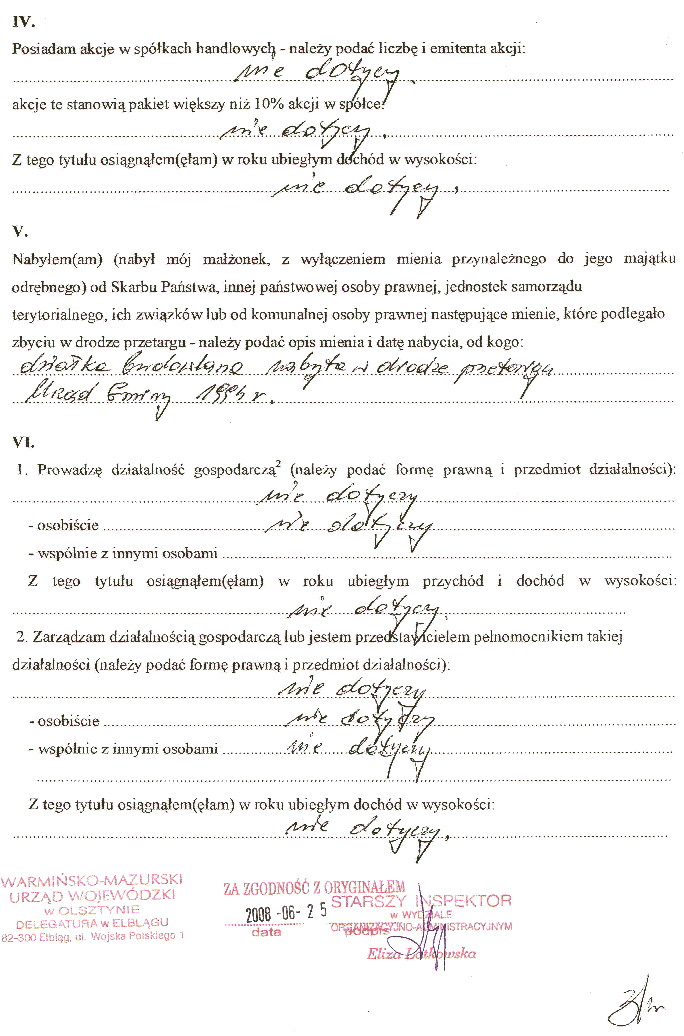 IV.
Posiadam akcje w spółkach handlowych - należy podać liczbę i emitenta akcji:
nie dotyczy
akcje te stanowią pakiet większy niż 10% akcji w spółce:
nie dotyczy.
Z tego tytułu osiągnąłem(ęłam) w roku ubiegłym dochód w wysokości:
nie dotyczy.
V.
Nabyłem(am) (nabył mój małżonek, z wyłączeniem mienia przynależnego do jego majątku
odrębnego) od Skarbu Państwa, innej państwowej osoby prawnej, jednostek samorządu
terytorialnego, ich związków lub od komunalnej osoby prawnej następujące mienie, które podlegało
zbyciu w drodze przetargu - należy podać opis mienia i datę nabycia, od kogo:
działka budowlana nabyta w drodze przetargu
Urząd Gminy 1994 r.
VI.
1. Prowadzę działalność gospodarczą² (należy podać formę prawną i przedmiot działalności):
nie dotyczy
- osobiście nie dotyczy
- wspólnie z innymi osobami
Z tego tytułu osiągnąłem(ęłam) w roku ubiegłym przychód i dochód w wysokości:
nie dotyczy.
2. Zarządzam działalnością gospodarczą lub jestem przedstawicielem pełnomocnikiem takiej
działalności (należy podać formę prawną i przedmiot działalności):
nie dotyczy
- osobiście nie dotyczy
- wspólnie z innymi osobami nie dotyczy
Z tego tytułu osiągnąłem(ęłam) w roku ubiegłym dochód w wysokości:
nie dotyczy.
WARMIŃSKO-MAZURSKI
URZĄD WOJEWÓDZKI
w OLSZTYNIE
DELEGATURA w ELBLĄGU
82-300 Elbląg, ul. Wojska Polskiego 1
ZA ZGODNOŚĆ Z ORYGINAŁEM
2008 -06- 2 5
data podpis
STARSZY INSPEKTOR
w WYDZIALE
ORGANIZACYJNO-ADMINISTRACYJNYM
Eliza